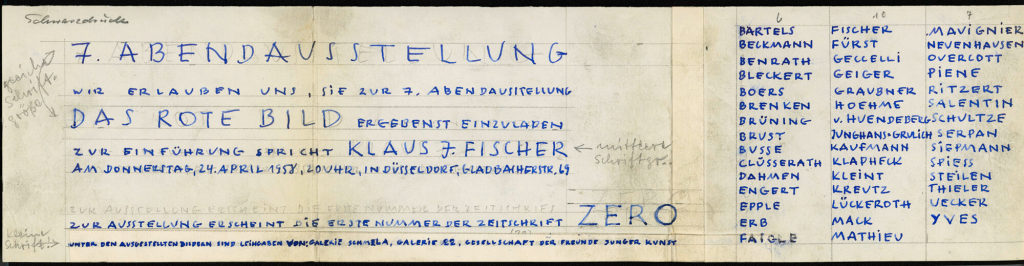 Schwarzdruck
7. ABENDAUSSTELLUNG
WIR ERLAUBEN UNS, SIE ZUR 7. ABENDAUSSTELLUNG
DAS ROTE BILD ERGEBENST EINZULADEN
ZUR EINFÜHRUNG SPRICHT KLAUS J. FISCHER
← mittlere Schriftgr.
AM DONNERSTAG, 24. APRIL 1958, 20 UHR, IN DÜSSELDORF, GLADBACHERSTR. 69
ZUR AUSSTELLUNG ERSCHEINT DIE ERSTE NUMMER DER ZEITSCHRIFT ZERO
UNTER DEN AUSGESTELLTEN BILDERN SIND LEIHGABEN VON: GALERIE SCHMELA, GALERIE 22, GESELLSCHAFT DER FREUNDE JUNGER KUNST
gleiche Schriftgröße
kleine Schrift
6
BARTELS
BECKMANN
BENRATH
BLECKERT
BOERS
BRENKEN
BRÜNING
BRUST
BUSSE
CLÜSSERATH
DAHMEN
ENGERT
EPPLE
ERB
FAIGLE
10
FISCHER
FÜRST
GECCELLI
GEIGER
GRAUBNER
HOEHME
v. HUENDEBERG
JUNGHANS-GRULICH
KAUFMANN
KLAPHECK
KLEINT
KREUTZ
LÜCKEROTH
MACK
MATHIEU
7
MAVIGNIER
NEUENHAUSEN
OVERCOTT
PIENE
RITZERT
SALENTIN
SCHULTZE
SERPAN
SIEPMANN
SPIESS
STEILEN
THIELER
UECKER
YVES